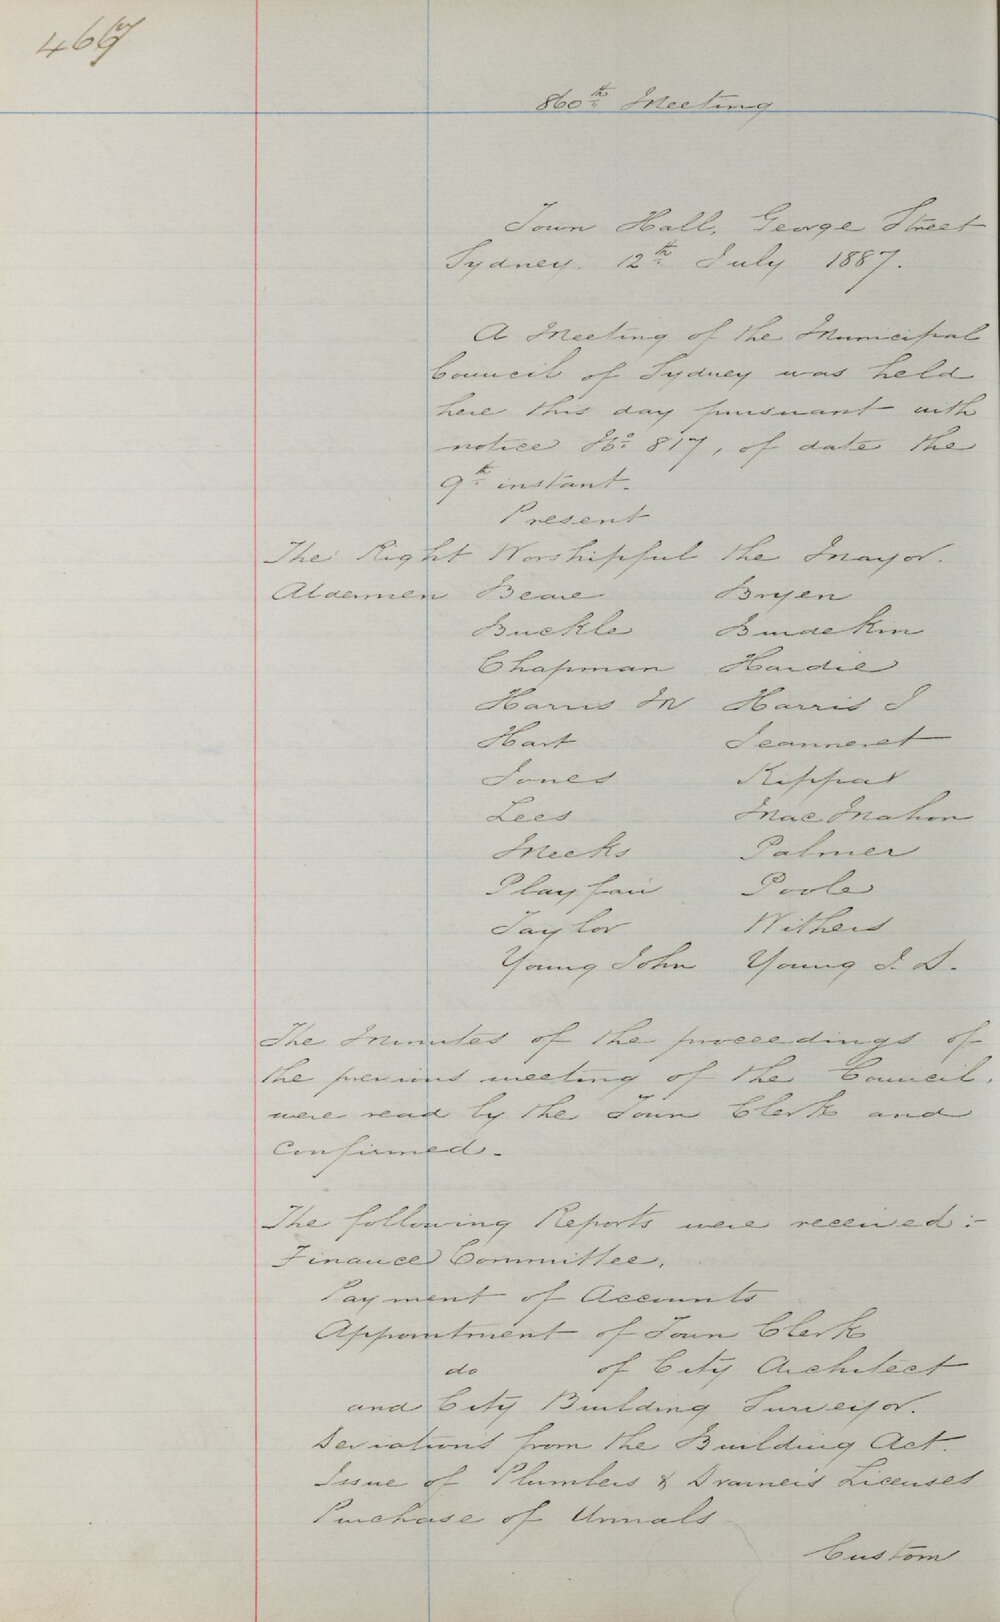 467
860th Meeting
Town Hall, George Street
Sydney. 12th July 1887.
A Meeting of the Municipal
Council of Sydney was held
here this day pursuant with
notice No. 817, of date the
9th instant.
Present
The Right Worshipful the Mayor.
Aldermen Beare Bryen
Buckle Burdekin
Chapman Hardie
Harris M Harris J
Hart Jeanneret
Jones Kippax
Lees MacMahon
Meeks Palmer
Playfair Poole
Taylor Withers
Young John Young J. D.
The Minutes of the proceedings of
the previous meeting of the Council,
were read by the Town Clerk and
confirmed.
The following Reports were received:-
Finance Committee.
Payment of Accounts
Appointment of Town Clerk
do of City Architect
and City Building Surveyor.
Deviations from the Building Act.
Issue of Plumbers & Drainers Licenses
Purchase of Urinals
Custom